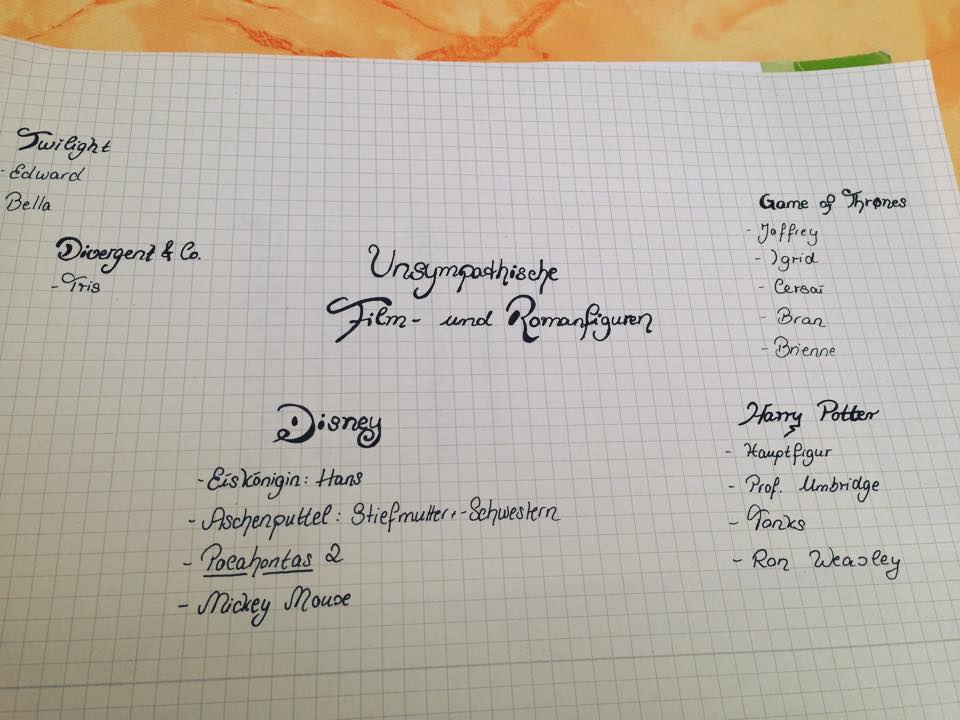 Twilight
- Edward
Bella
Divergent & Co.
- Tris
Unsympathische
Film- und Romanfiguren
Game of Thrones
- Joffrey
- Ygrid
- Cersai
- Bran
- Brienne
Disney
- Eiskönigin: Hans
- Aschenputtel: Stiefmutter + -Schwestern
- Pocahontas 2
- Mickey Mouse
Harry Potter
- Hauptfigur
- Prof. Umbridge
- Tonks
- Ron Weasley